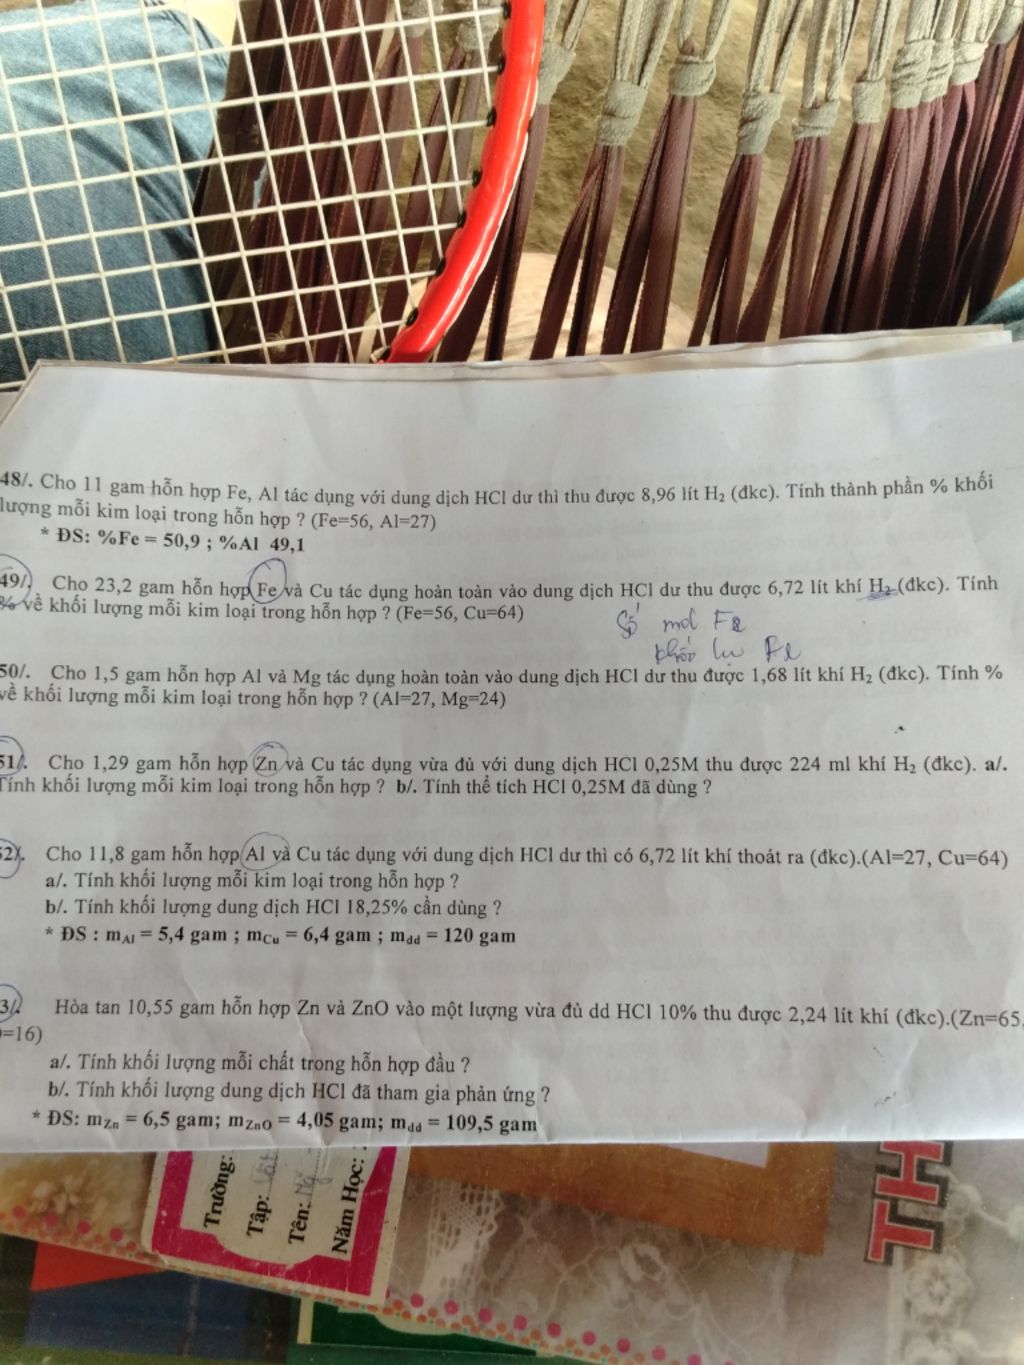 48/. Cho 11 gam hỗn hợp Fe, Al tác dụng với dung dịch HCl dư thì thu được 8,96 lít H₂ (đkc). Tính thành phần % khối
lượng mỗi kim loại trong hỗn hợp ? (Fe=56, Al=27)
* ĐS: %Fe = 50,9 ; %Al 49,1
49/. Cho 23,2 gam hỗn hợp Fe và Cu tác dụng hoàn toàn vào dung dịch HCl dư thu được 6,72 lít khí H₂ (đkc). Tính
% về khối lượng mỗi kim loại trong hỗn hợp ? (Fe=56, Cu=64)
Số mol Fe
khối Fe
50/. Cho 1,5 gam hỗn hợp Al và Mg tác dụng hoàn toàn vào dung dịch HCl dư thu được 1,68 lít khí H₂ (đkc). Tính %
về khối lượng mỗi kim loại trong hỗn hợp ? (Al=27, Mg=24)
51/. Cho 1,29 gam hỗn hợp Zn và Cu tác dụng vừa đủ với dung dịch HCl 0,25M thu được 224 ml khí H₂ (đkc). a/.
Tính khối lượng mỗi kim loại trong hỗn hợp ? b/. Tính thể tích HCl 0,25M đã dùng ?
52/. Cho 11,8 gam hỗn hợp Al và Cu tác dụng với dung dịch HCl dư thì có 6,72 lít khí thoát ra (đkc).(Al=27, Cu=64)
a/. Tính khối lượng mỗi kim loại trong hỗn hợp ?
b/. Tính khối lượng dung dịch HCl 18,25% cần dùng ?
* ĐS : mAl = 5,4 gam ; mCu = 6,4 gam ; mdd = 120 gam
3/. Hòa tan 10,55 gam hỗn hợp Zn và ZnO vào một lượng vừa đủ dd HCl 10% thu được 2,24 lít khí (đkc).(Zn=65,
=16)
a/. Tính khối lượng mỗi chất trong hỗn hợp đầu ?
b/. Tính khối lượng dung dịch HCl đã tham gia phản ứng ?
* ĐS: mZn = 6,5 gam; mZnO = 4,05 gam; mdd = 109,5 gam
Trường:
Tập:
Tên:
Năm Học:
TH